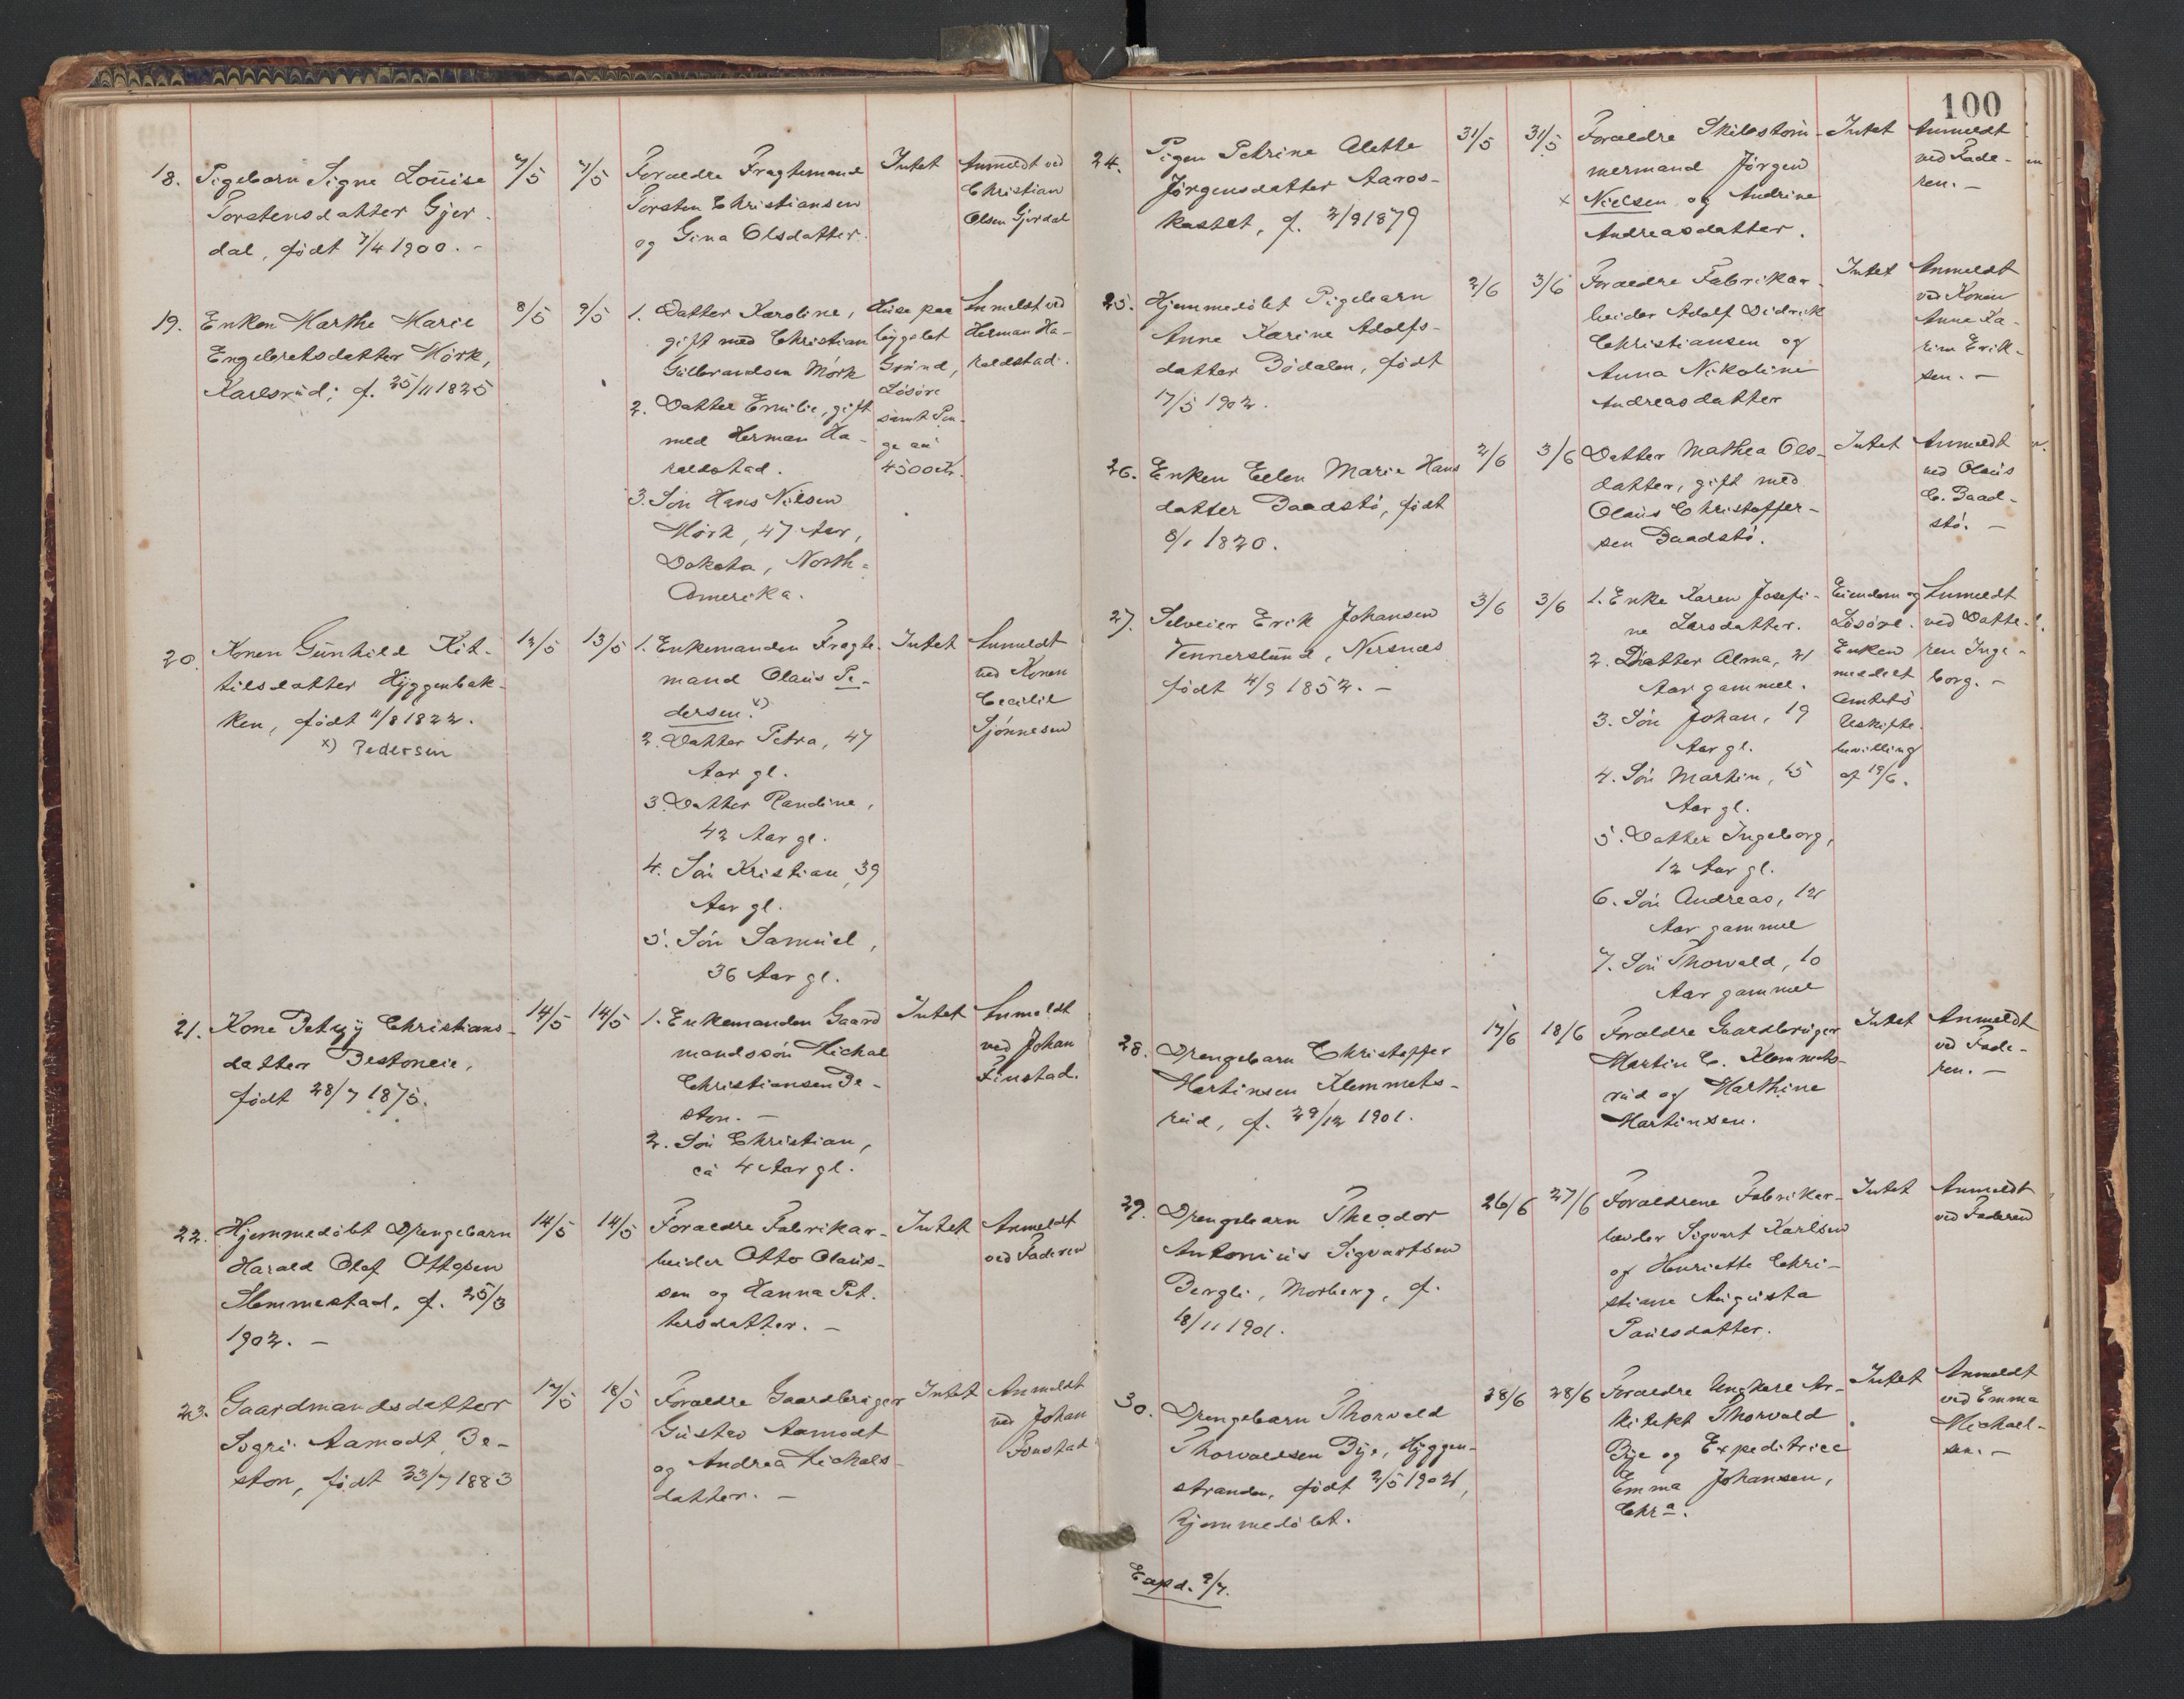 100
18. Pigebarn Signe Louise
Torstensdatter Gjer-
dal, født 7/4 1900. -
7/5
7/5
Forældre Fragtemand
Torsten Christiansen
og Gina Olsdatter.
Intet
Anmeldt ved
Christian
Olsen Gjerdal
19. Enken Marthe Marie
Engebretsdatter Mörk,
Karlsrud, f. 25/11 1825
8/5
9/5
1. Datter Karoline,
gift med Christian
Gulbrandsen Mörk
2. Datter Emilie, gift
med Herman Ha-
raldstad.
3. Sön Hans Nilsen
Mörk, 47 Aar,
Dakota, North-
Amerika.
Huse paa
bygslet
Grund,
Lösöre
samt Pen-
ge an
4500 Kr.
Anmeldt ved
Herman Ha-
raldstad.
20. Konen Gunhild Kit-
tilsdatter Hyggenbak-
ken, født 11/8 1822.
x) Pedersen
12/5
13/5
1. Enkemanden Fragte-
mand Olaus Pe-
dersen. x)
2. Datter Petra, 47
Aar gl.
3. Datter Randine,
42 Aar gl.
4. Sön Kristian, 39
Aar gl.
5. Sön Samuel,
36 Aar gl.
Intet
Anmeldt
ved Konen
Cecilie
Sjönnesen
21. Kone Betzy Christians-
datter Bestoneie,
født 28/7 1875.
14/5
14/5
1. Enkemanden Gaard
mandssön Michal
Christiansen Be-
ston. -
2. Sön Christian,
ca 4 Aar gl.
Intet
Anmeldt
ved Johan
Finstad.
22. Hjemmedöbt Drengebarn
Harald Olaf Ottosen
Slemmestad, f. 25/3
1902. -
14/5
14/5
Forældre Fabrikar-
beider Otto Olaus-
sen og Hanna Pet-
tersdatter. -
Intet
Anmeldt
ved Faderen
23. Gaardmandsdatter
Sogri Aamodt Be-
ston, født 23/7 1883
17/5
18/5
Forældre Gaardbruger
Gustav Aamodt
og Andrea Michals-
datter. -
Intet
Anmeldt
ved Johan
Fonstad
24. Pigen Petrine Alette
Jörgensdatter Aaros-
kastet, f. 2/9 1879
31/5
31/5
Forældre Skibstöm-
mermand Jörgen
x Nielsen og Andrine
Andreasdatter.
Intet
Anmeldt
ved Fade-
ren. -
25. Hjemmedöbt Pigebarn
Anne Karine Adolfs-
datter Bödalen, født
17/5 1902.
2/6
3/6
Forældre Fabrikar-
beider Adolf Didrik
Christiansen og
Anna Nikoline
Andreasdatter
Intet
Anmeldt
ved Konen
Anne Ka-
rine Erik-
sen. -
26. Enken Ellen Marie Hans
datter Baadstö, født
8/1 1820.
2/6
3/6
Datter Mathea Ols-
datter, gift med
Olaus Christoffer-
sen Baadstö.
Intet
Anmeldt
ved Olaus
C. Baad-
stö. -
27. Selveier Erik Johansen
Vennerslund, Nersnæs
født 4/9 1852. -
3/6
3/6
1. Enke Karen Josefi-
ne Larsdatter.
2. Datter Alma, 21
Aar gammel.
3. Sön Johan, 19
Aar gl.
4. Sön Martin, 15
Aar gl.
5. Datter Ingeborg,
12 Aar gl.
6. Sön Andreas, 12
Aar gammel
7. Sön Thorvald, 10
Aar gammel
Eiendom og
Lösöre.
Enken
meddelt
Amtets
Uskifte-
bevilling
af 19/6.
Anmeldt
ved Datte-
ren Inge-
borg. -
28. Drengebarn Christoffer
Martinsen Klemmets-
rud, f. 29/12 1901.
17/6
18/6
Forældre Gaardbruger
Martin C. Klemmets-
rud og Marthine
Martinsen.
Intet
Anmeldt
ved Fade-
ren. -
29. Drengebarn Theodor
Antonius Sigvartsen
Bergli, Morberg, f.
18/11 1901.
26/6
27/6
Forældrene Fabrikar-
beider Sigvart Karlsen
og Henriette Chri-
stiane Augusta
Paulsdatter.
Intet
Anmeldt
ved Faderen
30. Drengebarn Thorvald
Thorvaldsen Bye, Hyggen-
stranden, født 2/5 1902,
hjemmedöbt.
28/6
28/6
Forældre Ungkarl Ar-
kitekt Thorvald
Bye og Expeditrice
Emma Johansen,
Chra.
Intet
Anmeldt
ved Emma
Michael-
sen. -
Expd. 9/7.